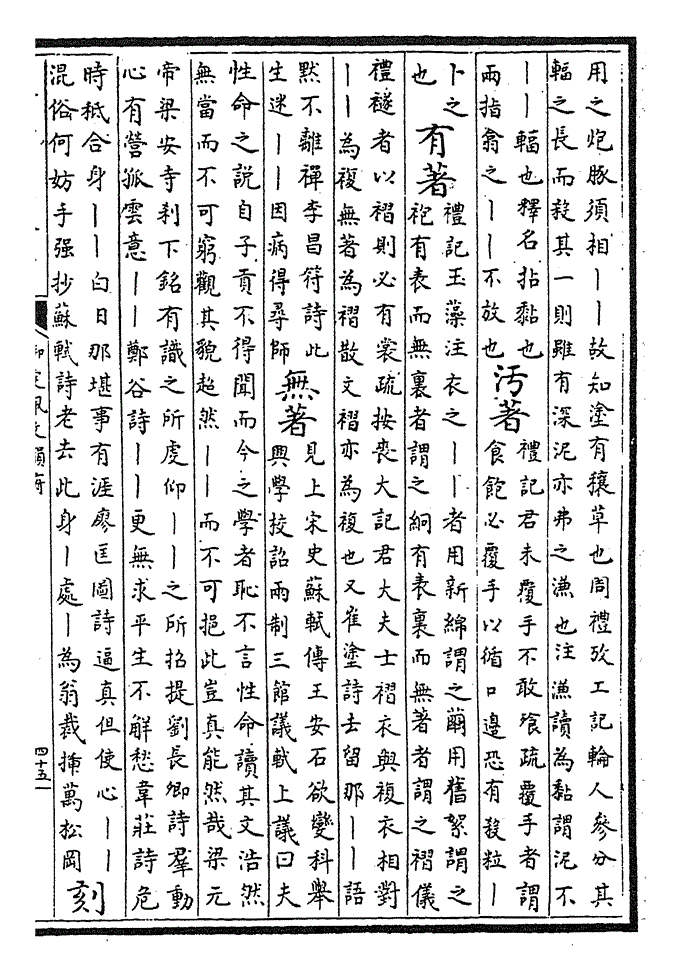 用之炮豚須相丨丨故知塗有穰草也周禮攷工記輪人參分其
輻之長而殺其一則雖有深泥亦弗之溓也注溓讀為黏謂泥不
丨丨輻也釋名拈黏也
兩指翕之丨丨不放也
汚著
禮記君未覆手不敢飱疏覆手者謂
食飽必覆手以循口邊恐有殺粒丨
卜之
也
有著
禮記玉藻注衣之丨丨者用新綿謂之繭用舊絮謂之
袍有表而無裏者謂之絅有表裏而無著者謂之褶儀
禮襚者以褶則必有裳疏按喪大記君大夫士褶衣與複衣相對
丨丨為複無著為褶散文褶亦為複也又崔塗詩去留那丨丨語
默不離禪李昌符詩此
生迷丨丨因病得尋師
無著
見上宋史蘇軾傳王安石欲變科舉
興學挍詔兩制三館議軾上議曰夫
性命之說自子貢不得聞而今之學者恥不言性命讀其文浩然
無當而不可窮觀其貌超然丨丨而不可挹此豈真能然哉梁元
帝梁安寺刹下銘有識之所虔仰丨丨之所招提劉長卿詩羣動
心有營孤雲意丨丨鄭谷詩丨丨更無求平生不解愁韋莊詩危
時秪合身丨丨白日那堪事有涯廖匡圖詩逼真但使心丨丨
混俗何妨手强抄蘇軾詩老去此身丨處丨為翁栽揷萬松岡
刻
御定佩文韻府
四十五